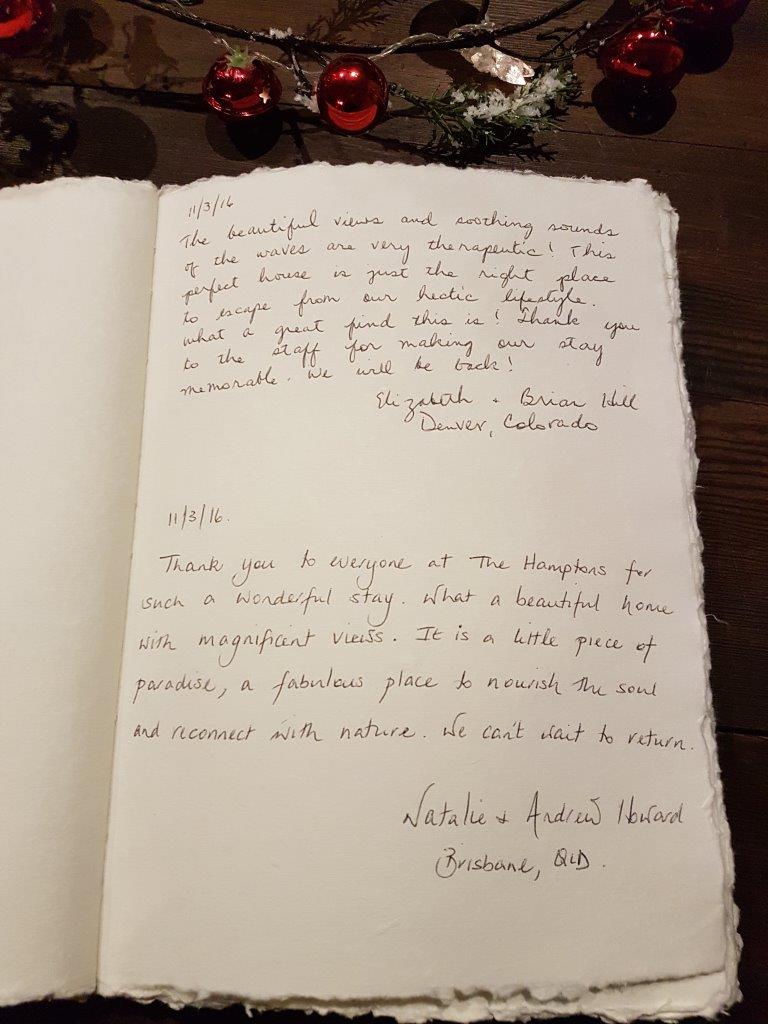 11/3/16
The beautiful views and soothing sounds
of the waves are very therapeutic! This
perfect house is just the right place
to escape from our hectic lifestyle.
what a great find this is! Thank you
to the staff for making our stay
memorable. We will be back!
Elizabeth + Brian Hill
Denver, Colorado
11/3/16.
Thank you to everyone at The Hamptons for
such a wonderful stay. What a beautiful home
with magnificent views. It is a little piece of
paradise, a fabulous place to nourish the soul
and reconnect with nature. We can't wait to return.
Natalie & Andrew Howard
Brisbane, QLD.